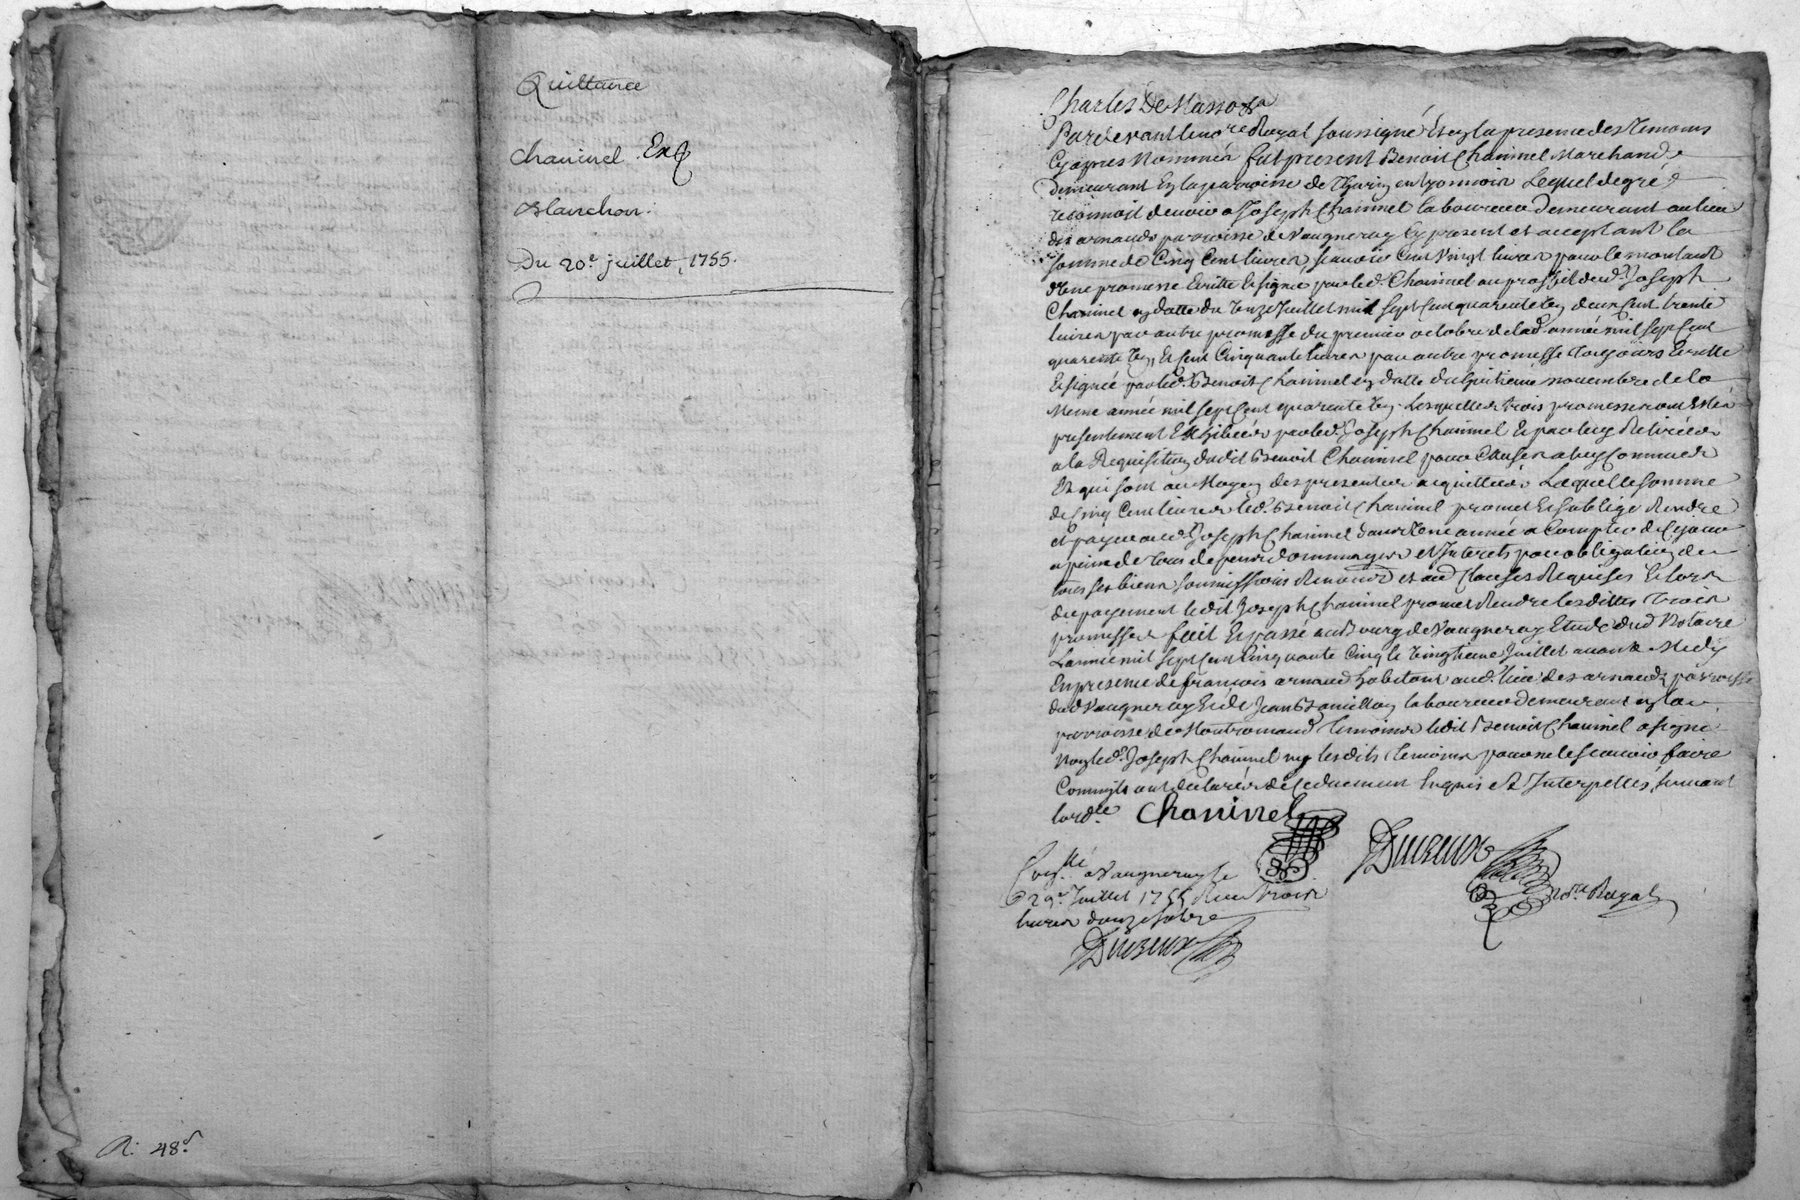 Quittance
Chaninel Ex
Blanchon.
Du 20e juillet, 1755.
R. 48s
Charles De Masso &a
Pardevant le no.re Royal soussigné Et en la presence des Temoins
Cy apres Nommés fut present Benoit Chaninel Marchand
Demeurant En la parroisse de Thurin en Lyonnois Lequel de gré
reconnoit devoir a Joseph Chaninel laboureur demeurant au lieu
des arnauds parroisse de Vaugneray Cy present et acceptant la
somme de Cinq Cent livres, scavoir Cent Vingt livres pour le montant
d'Une promesse Ecritte Et signée par led. Chaninel au proffit dud. Joseph
Chaninel en datte du Onze Juillet mil sept Cent quarente deux Cent trente
livres par autre promesse du premier octobre de lad. année mil sept Cent
quarente Et Cent Cinquante livres par autre promesse toujours Ecritte
Et signée par led. Benoit Chaninel en datte du huitieme novembre de la
Meme année mil sept Cent quarente Lesquelles trois promesses ont Eté
presentement Exhibées par led. Joseph Chaninel Et par luy Retirées
a la Requisition dudit Benoit Chaninel pour Causes a luy Connues
Et qui sont au Moyen des presentes acquittées Laquelle somme
de Cinq Cent livres led. Benoit Chaninel promet Et s'oblige Rendre
et payer aud. Joseph Chaninel dans Une année a Compter de Ce jour
a peine de tous depens dommages et Interets par obligation de
tous ses biens soumissions Renonc.ns et aud Clauses Requises Et lors
du payement ledit Joseph Chaninel promet Rendre lesdittes trois
promesses fait Et passé au Bourg de Vaugneray Etude dud Notaire
L'année mil sept Cent Cinquante Cinq le Vingtieme Juillet avant Midy
En presence de francois arnaud habitant aud. lieu des arnauds parroisse
dud Vaugneray Et de Jean laboureur demeurant en la
parroisse de Montromand temoins ledit Benoit Chaninel a signé
Non led. Joseph Chaninel ny lesdits temoins pour ne le scavoir faire
Comm'ils ont declarés de Ce duement Enquis et Interpellés, suivant
l'ord.ce Chaninel
Con.llé a Vaugneray le
29e Juillet 1755 Reçu trois
livres douze sols
no.re Royal